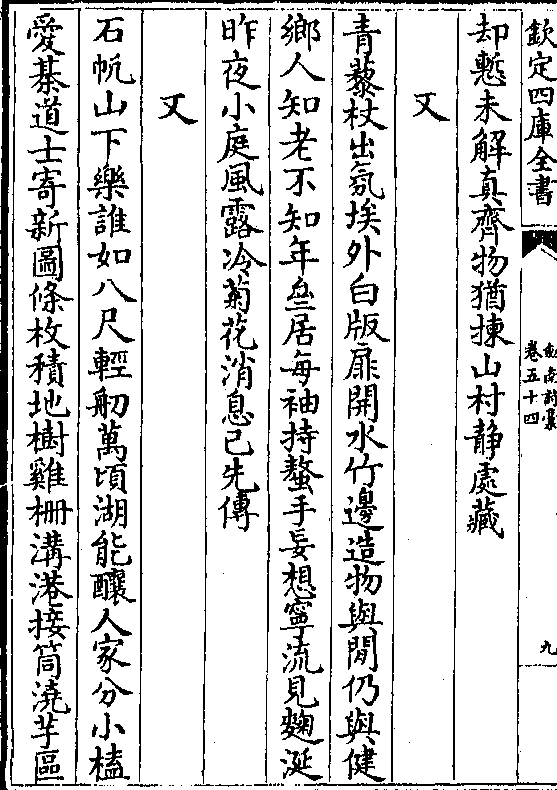 欽定四庫全書
劍南詩稾
卷五十四
九
却慙未解真齊物猶揀山村静處藏
又
青藜杖出氛埃外白版扉開水竹邊造物與閒仍與健
鄉人知老不知年壘居每袖持螯手妄想寧流見麴涎
昨夜小庭風露冷菊花消息已先傳
又
石帆山下樂誰如八尺輕舠萬頃湖能釀人家分小榼
愛棊道士寄新圖條枚積地樹雞柵溝港接筒澆芋區